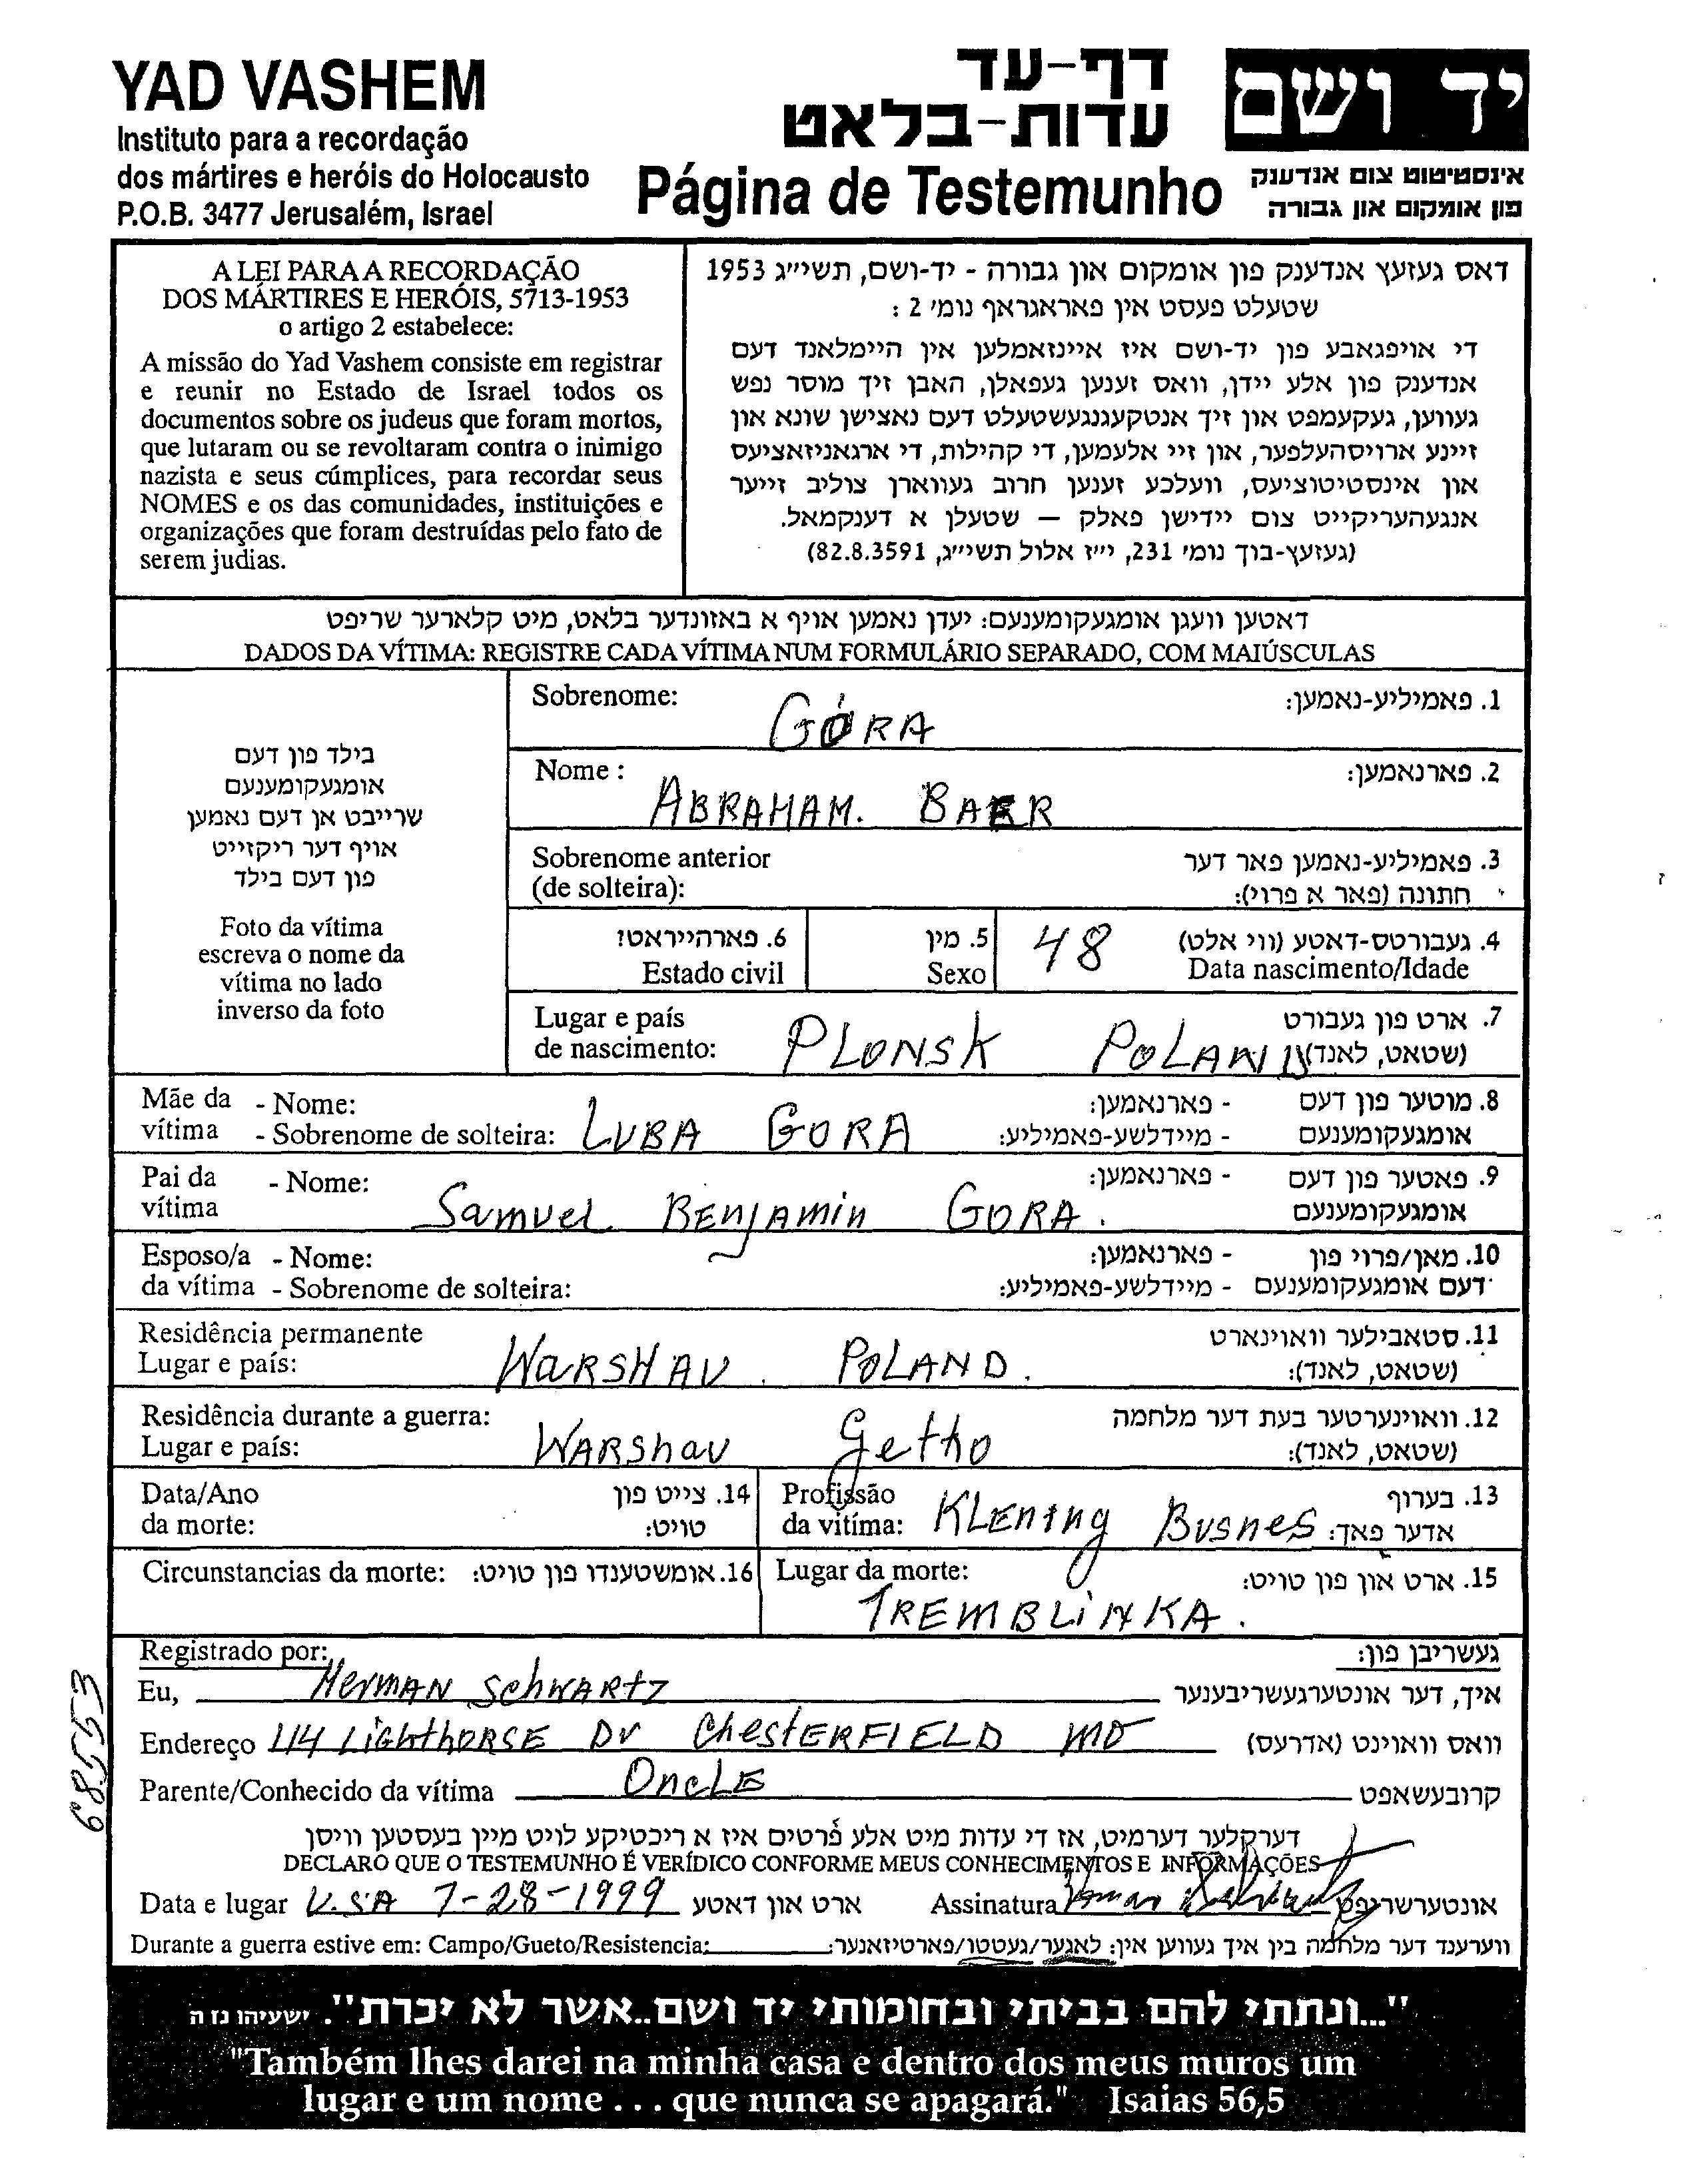 YAD VASHEM
Instituto para a recordação
dos mártires e heróis do Holocausto
P.O.B. 3477 Jerusalém, Israel
דף-עד
עדות-בלאט
Página de Testemunho
יד ושם
אינסטיטוט צום אנדענק
פון אומקום און גבורה
A LEI PARA A RECORDAÇÃO
DOS MÁRTIRES E HERÓIS, 5713-1953
o artigo 2 estabelece:
A missão do Yad Vashem consiste em registrar
e reunir no Estado de Israel todos os
documentos sobre os judeus que foram mortos,
que lutaram ou se revoltaram contra o inimigo
nazista e seus cúmplices, para recordar seus
NOMES e os das comunidades, instituições e
organizações que foram destruídas pelo fato de
serem judias.
דאס געזעץ אנדענק פון אומקום און גבורה - יד-ושם, תשי״ג 1953
שטעלט פעסט אין פאראגראף נומ׳ 2 :
די אויפגאבע פון יד-ושם איז איינזאמלען אין היימלאנד דעם
אנדענק פון אלע יידן, וואס זענען געפאלן, האבן זיך מוסר נפש
געווען, געקעמפט און זיך אנטקעגנגעשטעלט דעם נאצישן שונא און
זיינע ארויסהעלפער, און זיי אלעמען, די קהילות, די ארגאניזאציעס
און אינסטיטוציעס, וועלכע זענען חרוב געווארן צוליב זייער
אנגעהעריקייט צום יידישן פאלק — שטעלן א דענקמאל.
(געזעץ-בוך נומ׳ 231, י״ז אלול תשי״ג, 82.8.3591)
דאטען וועגן אומגעקומענעם: יעדן נאמען אויף א באזונדער בלאט, מיט קלארער שריפט
DADOS DA VÍTIMA: REGISTRE CADA VÍTIMA NUM FORMULÁRIO SEPARADO, COM MAIÚSCULAS
בילד פון דעם
אומגעקומענעם
שרייבט אן דעם נאמען
אויף דער ריקזייט
פון דעם בילד
Foto da vítima
escreva o nome da
vítima no lado
inverso da foto
Sobrenome: GÓRA 1. פאמיליע-נאמען:
Nome : ABRAHAM. BAER 2. פארנאמען:
Sobrenome anterior 3. פאמיליע-נאמען פאר דער
(de solteira): חתונה (פאר א פרוי):
6. פארהייראט? 5. מין 48 4. געבורטס-דאטע (ווי אלט)
Estado civil Sexo Data nascimento/Idade
Lugar e país 7. ארט פון געבורט
de nascimento: PLONSK POLAND (שטאט, לאנד)
Mãe da - Nome: - פארנאמען: 8. מוטער פון דעם
vítima - Sobrenome de solteira: LUBA GORA - מיידלשע-פאמיליע: אומגעקומענעם
Pai da - Nome: - פארנאמען: 9. פאטער פון דעם
vítima Samuel Benjamin GORA. אומגעקומענעם
Esposo/a - Nome: - פארנאמען: 10. מאן/פרוי פון
da vítima - Sobrenome de solteira: - מיידלשע-פאמיליע: דעם אומגעקומענעם
Residência permanente 11. סטאבילער וואוינארט
Lugar e país: WARSHAU. POLAND. (שטאט, לאנד):
Residência durante a guerra: 12. וואוינערטער בעת דער מלחמה
Lugar e país: WARShau Getho (שטאט, לאנד):
Data/Ano 14. צייט פון Profissão 13. בערוף
da morte: טויט: da vítima: KLENing Busnes אדער פאך:
Circunstancias da morte: 16. אומשטענדן פון טויט: Lugar da morte: 15. ארט און פון טויט:
TREMBLiNKA.
Registrado por: געשריבן פון:
Eu, HerMAN SchWARtz איך, דער אונטערגעשריבענער
Endereço 114 LighthORSE Dr ChesTERFIELD MO וואס וואוינט (אדרעס)
Parente/Conhecido da vítíma OncLE קרובעשאפט
דערקלער דערמיט, אז די עדות מיט אלע פרטים איז א ריכטיקע לויט מיין בעסטען וויסן
DECLARO QUE O TESTEMUNHO É VERÍDICO CONFORME MEUS CONHECIMENTOS E INFORMAÇÕES
Data e lugar U.S.A 7-28-1999 ארט און דאטע Assinatura אונטערשריפט
Durante a guerra estive em: Campo/Gueto/Resistencia: ווערענד דער מלחמה בין איך געווען אין: לאגער/געטטו/פארטיזאנער:
69553
"...ונתתי להם בביתי ובחומותי יד ושם..אשר לא יכרת". ישעיהו נז ה
"Também lhes darei na minha casa e dentro dos meus muros um
lugar e um nome . . . que nunca se apagará." Isaias 56,5